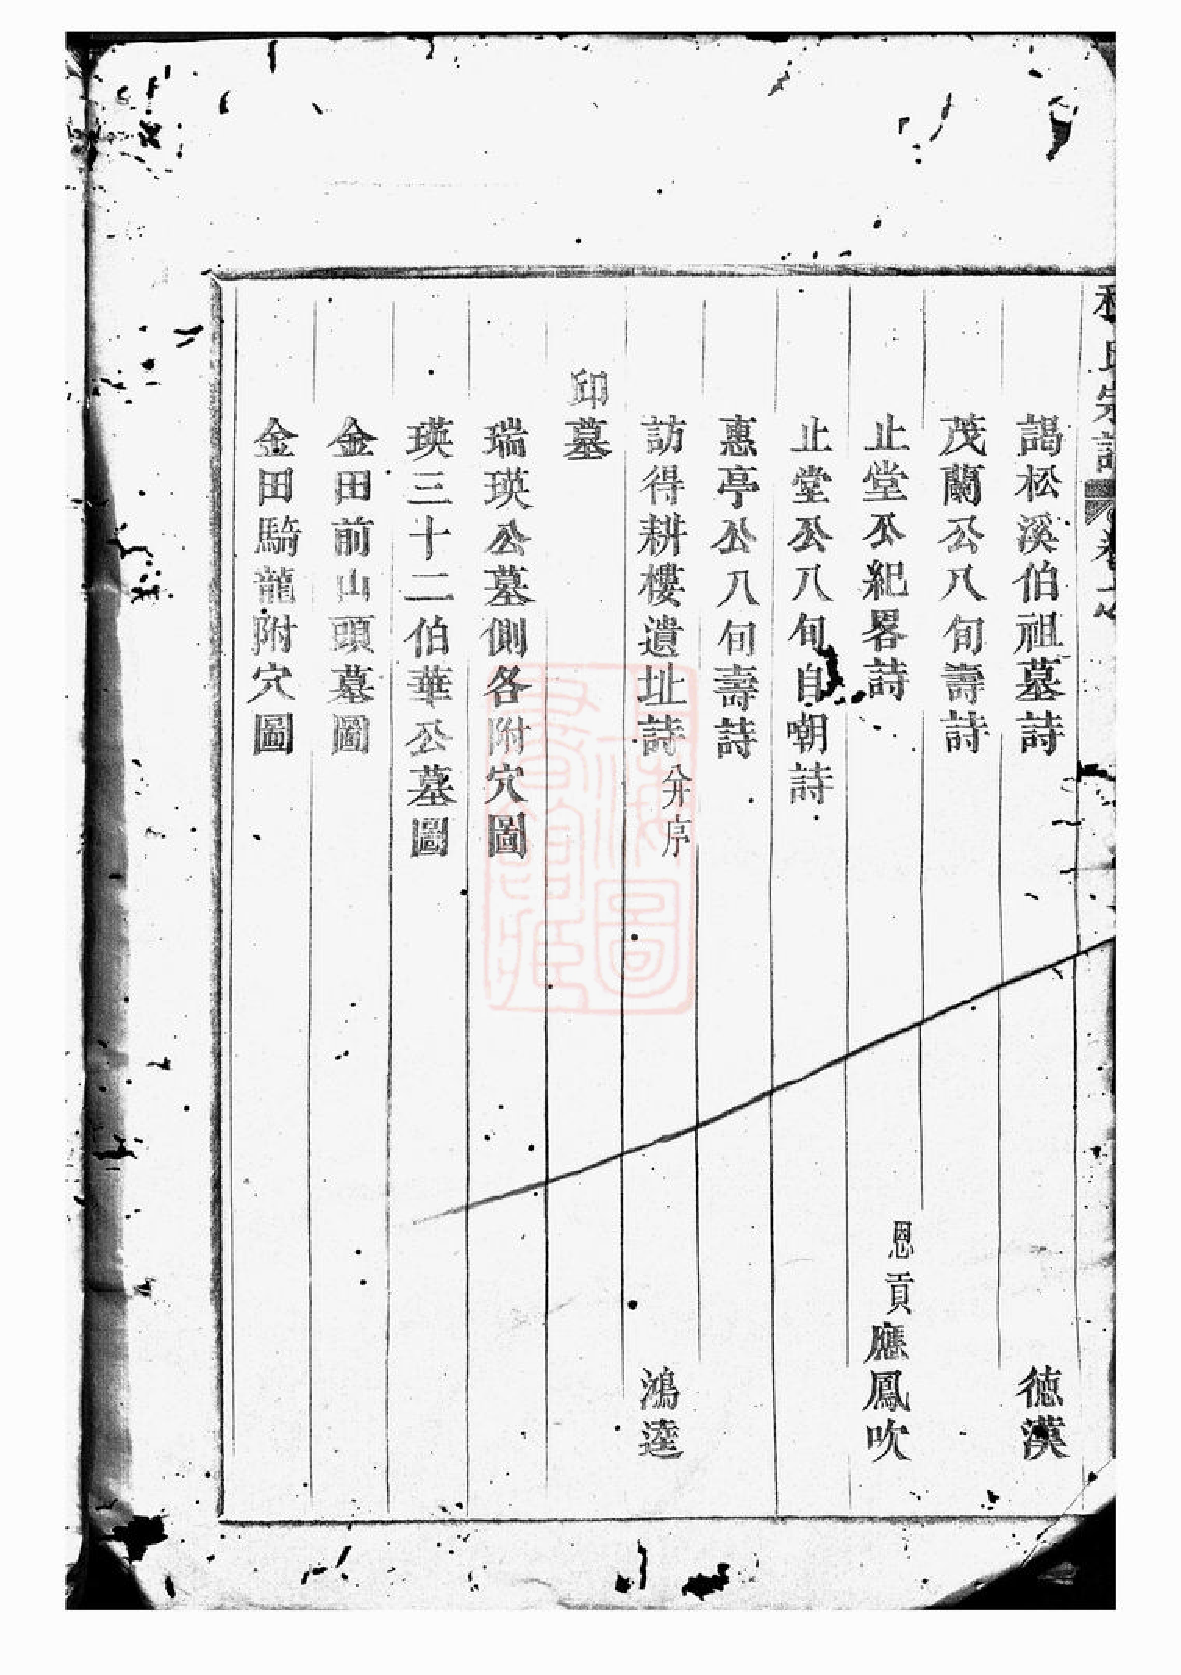 氏宗譜
謁松溪伯祖墓詩 德漢
茂蘭公八旬壽詩
止堂公紀畧詩 恩貢應鳳吹
止堂公八旬自嘲詩
惠亭公八旬壽詩
訪得耕樓遺址詩分序 鴻逵
邱墓
瑞瑛公墓側各附穴圖
瑛三十二伯華公墓圖
金田前山頭墓圖
金田騎龍附穴圖
上海圖書館藏